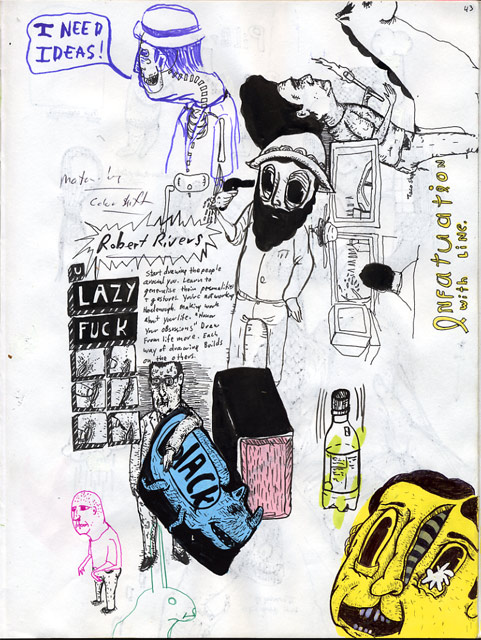 43
I NEED
IDEAS!
Color shift
Robert Rivers
U
LAZY
FUCK
Start drawing the people
around you. Learn to
generalise their personalities
+ gestures. You're not working
Hard enough. Making work
About your life. "Know
Your obsessions" Draw
From life more. Each
way of drawing Builds
on the others.
Infatuation
with Line.
JACK